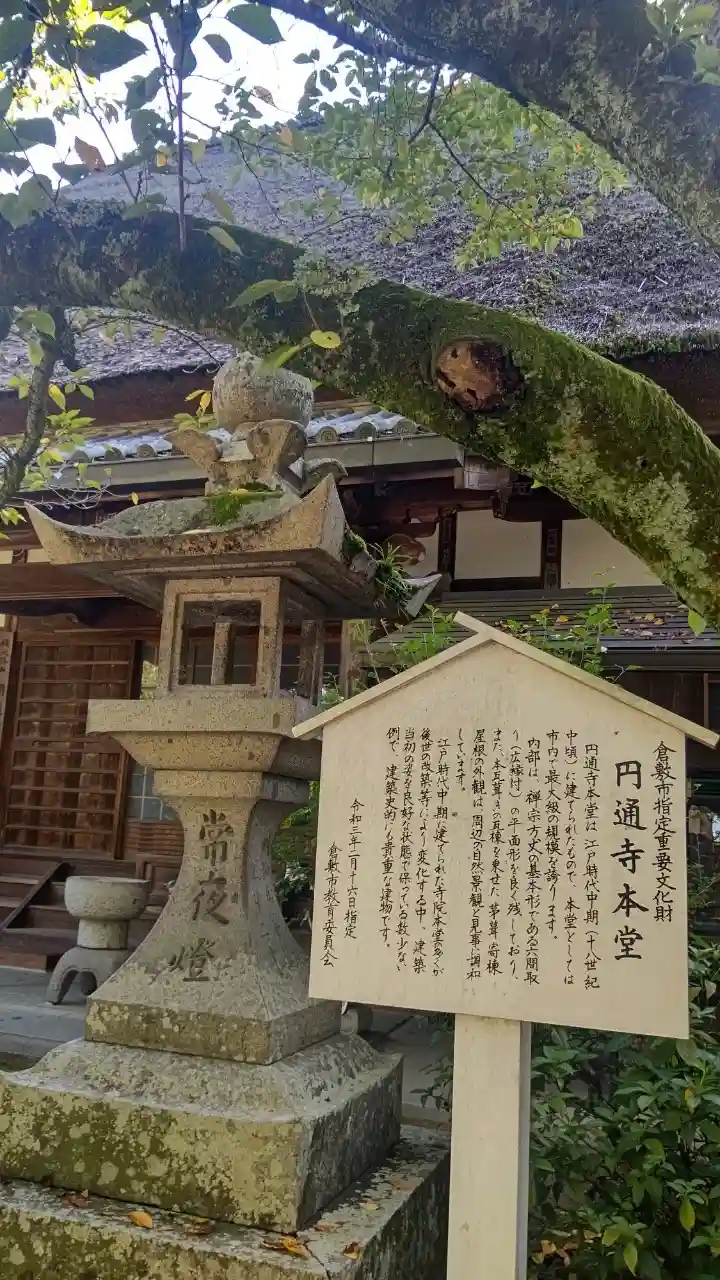 倉敷市指定重要文化財
円通寺本堂
円通寺本堂は、江戸時代中期(十八世紀
中頃)に建てられたもので、本堂としては
市内で最大級の規模を誇ります。
内部は、禅宗方丈の基本形である六間取
り(広縁付)の平面形を良く残しており、
また、本瓦葺きの瓦棟を乗せた茅葺寄棟
屋根の外観は、周辺の自然景観と見事に調和
しています。
江戸時代中期に建てられた寺院本堂の多くが
後世の改築等により変化する中、建築
当初の姿を良好な状態で保っている数少ない
例で、建築史的にも貴重な建物です。
令和三年二月十六日指定
倉敷市教育委員会
常夜燈